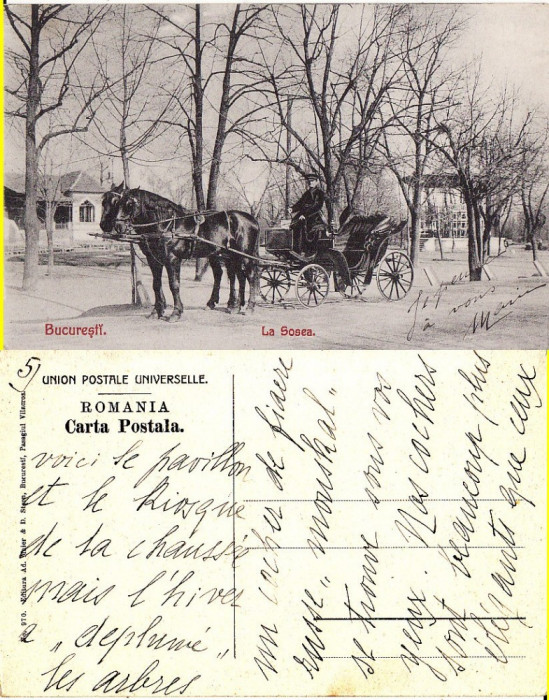 Bucureştĭ.
La Sosea.
Je pense
à vous
Marie
5)
UNION POSTALE UNIVERSELLE.
ROMANIA
Carta Postala.
Editura Ad. Maier & D. Stern, Bucurestĭ, Pasagiul Vilacros
voici le pavillon
et le Kiosque
de la chaussée
mais l'hiver
a „deplumé"
les arbres
un cocher de fiacre
russe „mouskal"
se trouve sous vos
yeux. Nos cochers
sont beaucoup plus
élégants que ceux